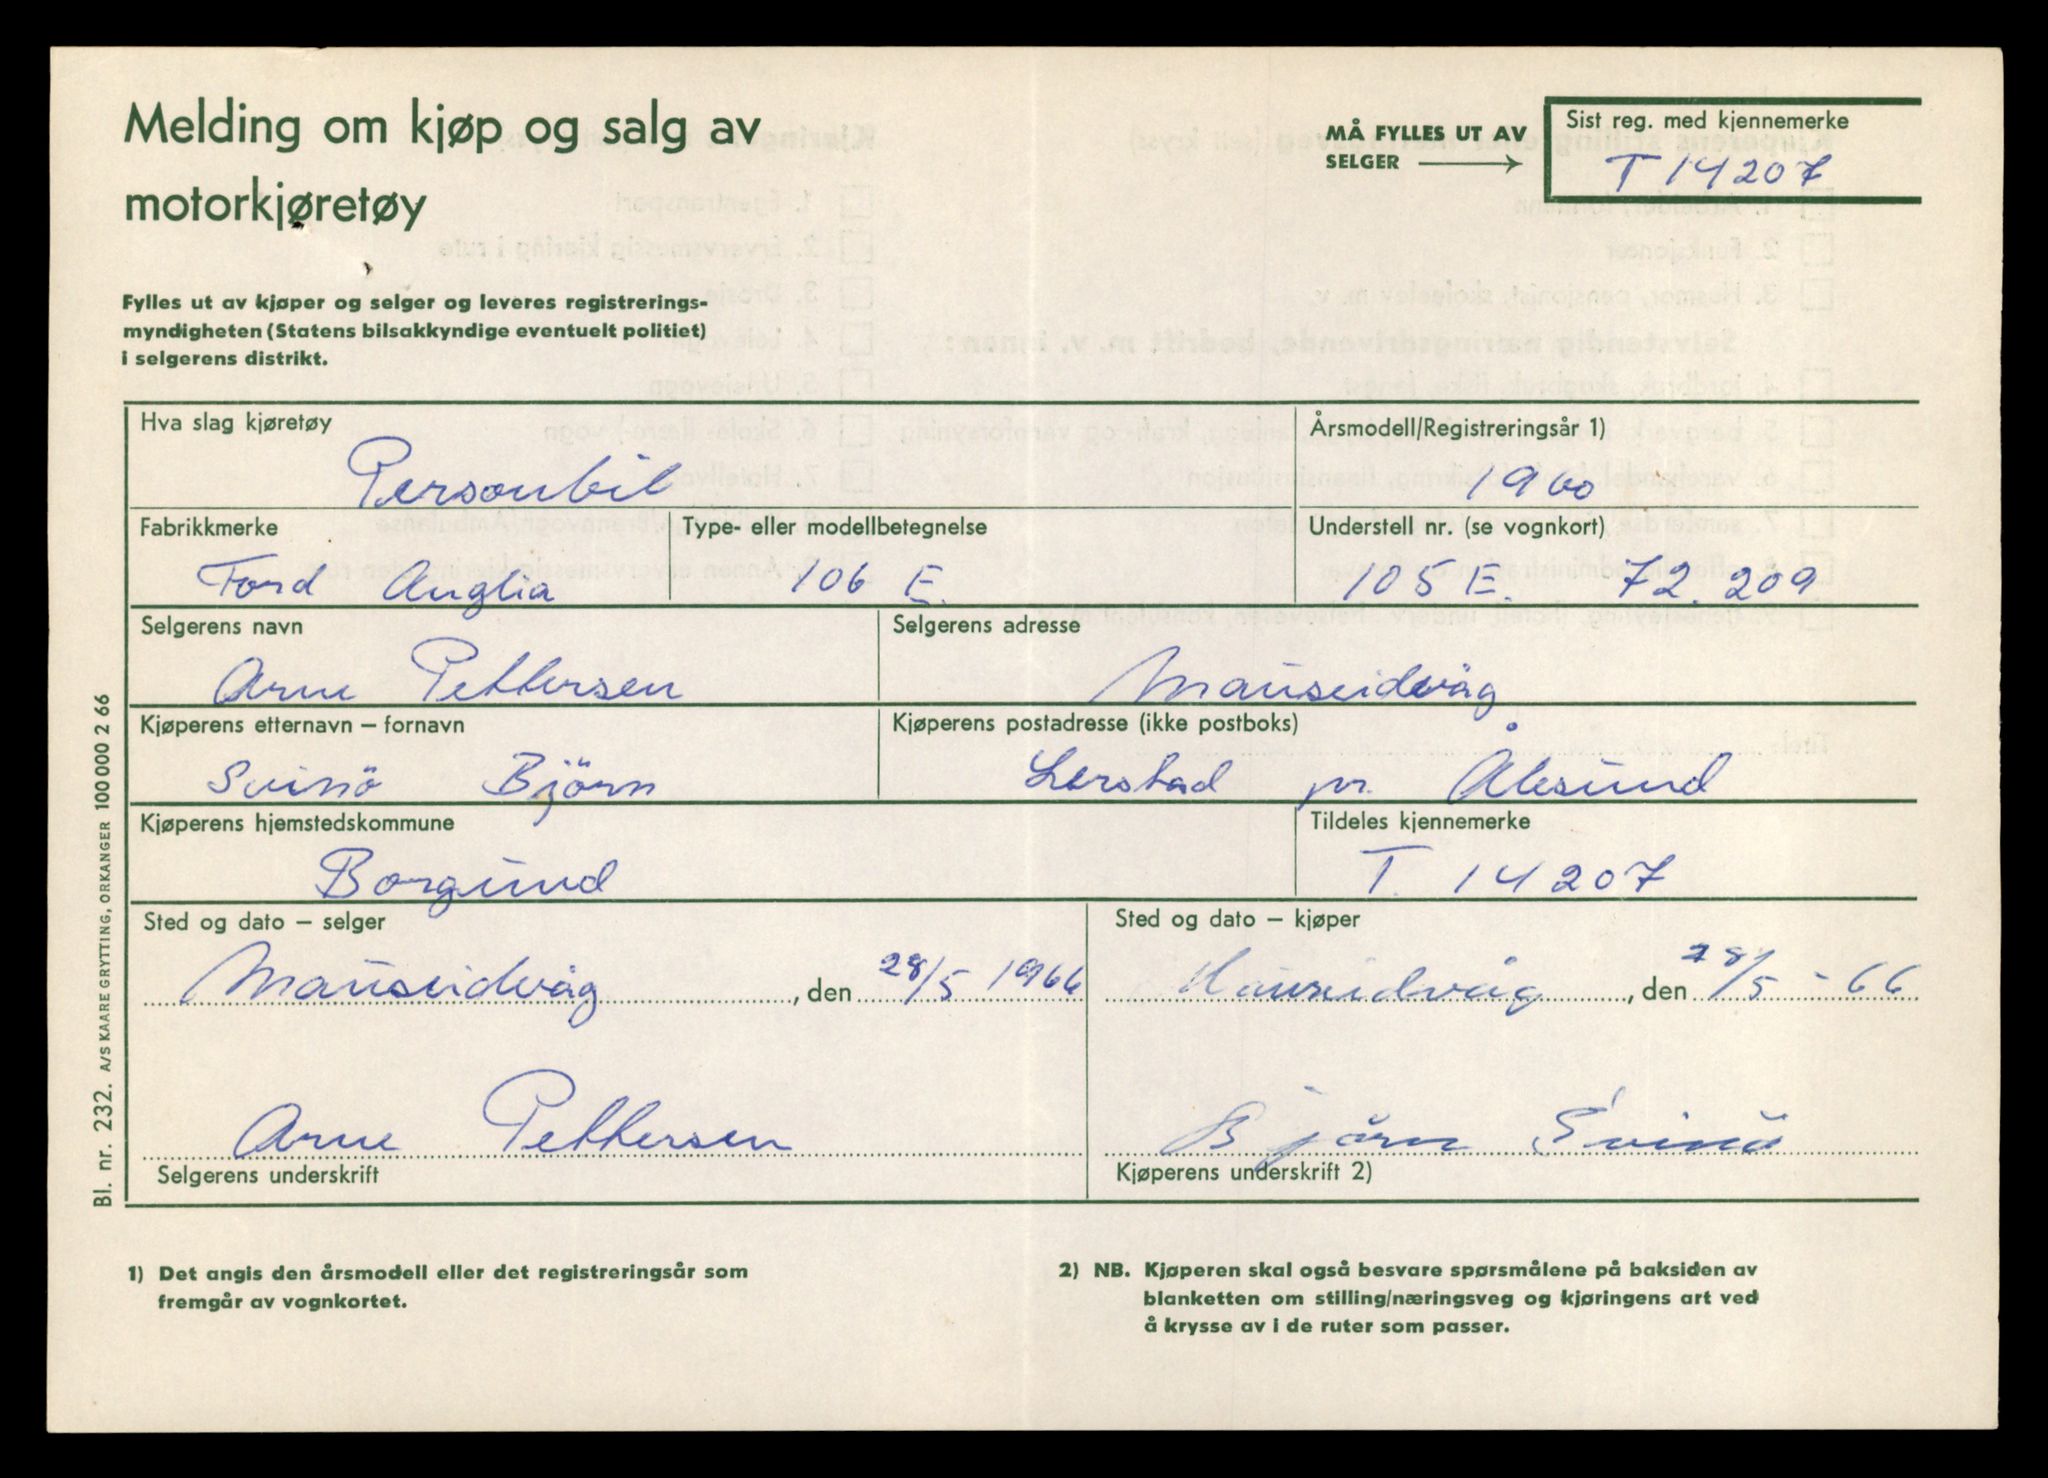 Melding om kjøp og salg av
motorkjøretøy
MÅ FYLLES UT AV
SELGER
Sist reg. med kjennemerke
T 14207
Fylles ut av kjøper og selger og leveres registrerings-
myndigheten (Statens bilsakkyndige eventuelt politiet)
i selgerens distrikt.
Hva slag kjøretøy
Personbil
Årsmodell/Registreringsår 1)
1960
Fabrikkmerke
Ford Anglia
Type- eller modellbetegnelse
106 E.
Understell nr. (se vognkort)
105 E. 72.209
Selgerens navn
Arne Pettersen
Selgerens adresse
Mauseidvåg
Kjøperens etternavn – fornavn
Svinö Björn
Kjøperens postadresse (ikke postboks)
Lerstad pr. Ålesund
Kjøperens hjemstedskommune
Borgund
Tildeles kjennemerke
T. 14207
Sted og dato – selger
Mauseidvåg, den 28/5 1966
Sted og dato – kjøper
Mauseidvåg, den 28/5 - 66
Arne Pettersen
Selgerens underskrift
Björn Svinö
Kjøperens underskrift 2)
Bl. nr. 232. A/S KAARE GRYTTING, ORKANGER 100 000 2 66
1) Det angis den årsmodell eller det registreringsår som
fremgår av vognkortet.
2) NB. Kjøperen skal også besvare spørsmålene på baksiden av
blanketten om stilling/næringsveg og kjøringens art ved
å krysse av i de ruter som passer.